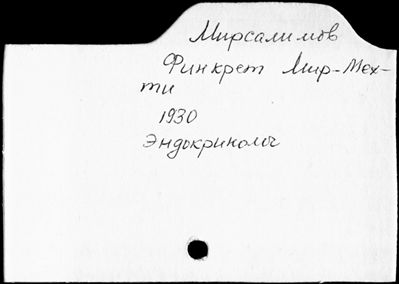 Мирсалимов
Финкрет Мир-Мех-
ти
1930
Эндокринолог